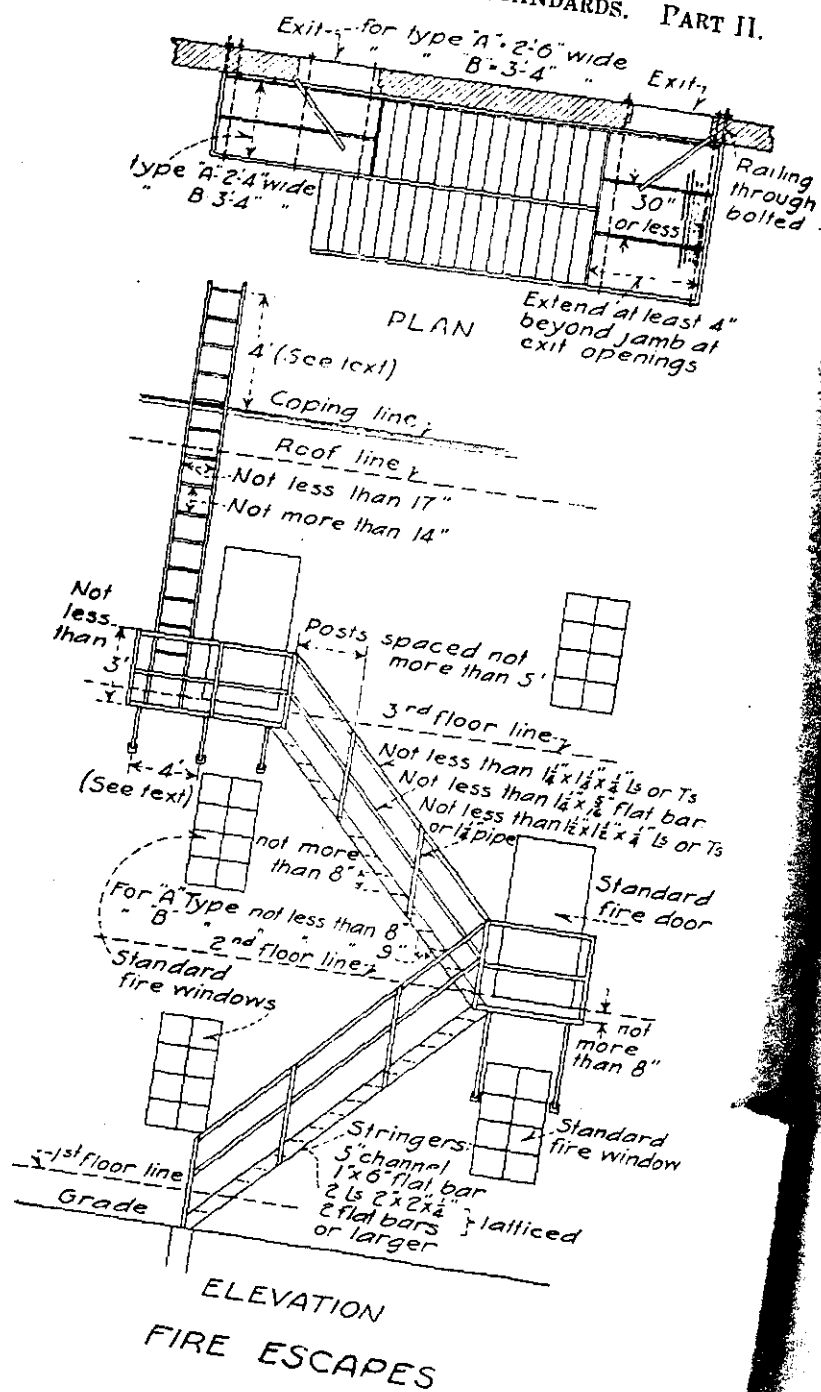 STANDARDS. PART II.
Exit for type "A" = 2'-6" wide
" " B = 3'-4" "
Exit
type "A" 2'-4" wide
" B 3'-4" "
30"
or less
Railing
through
bolted
Extend at least 4"
beyond jamb at
exit openings
PLAN
4' (See text)
Coping line
Roof line
Not less than 17"
Not more than 14"
Not
less
than
3'
Posts spaced not
more than 5'
3rd floor line
4'
(See text)
Not less than 1 1/4" x 1 1/4" x 1/4" Ls or Ts
Not less than 1 1/4" x 5/16" flat bar
Not less than 1 1/2" x 1 1/2" x 1/4" Ls or Ts
or 1 1/4" pipe
not more
than 8"
For "A" Type not less than 8"
" B " " " 9"
2nd floor line
Standard
fire door
Standard
fire windows
not
more
than 8"
Standard
fire window
1st floor line
Grade
Stringers
5" channel
1" x 6" flat bar
2 Ls 2" x 2" x 1/4" } latticed
2 flat bars
or larger
ELEVATION
FIRE ESCAPES